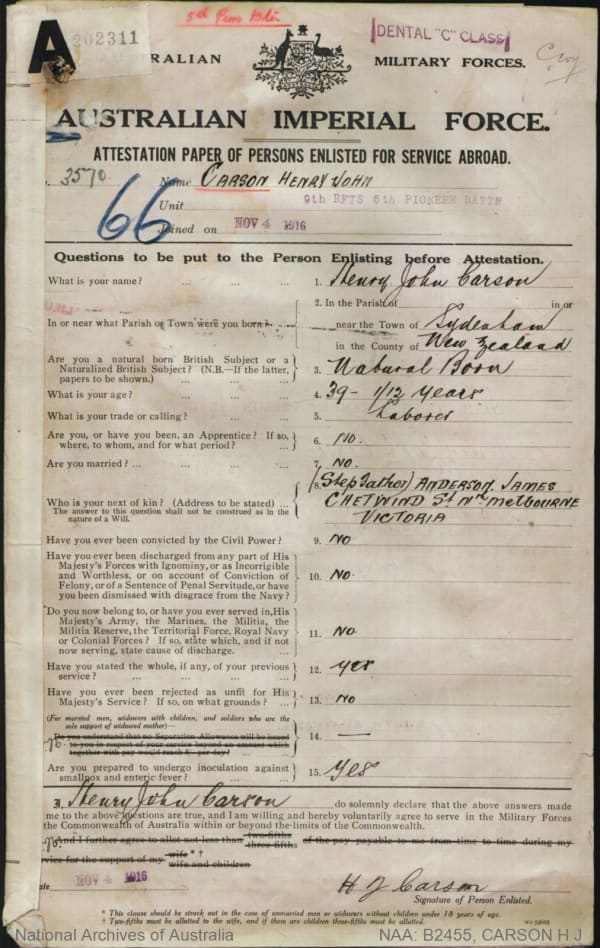 5th Pnr Bn
A 202311
DENTAL "C" CLASS
AUSTRALIAN MILITARY FORCES.
AUSTRALIAN IMPERIAL FORCE.
ATTESTATION PAPER OF PERSONS ENLISTED FOR SERVICE ABROAD.
3570 Name CARSON HENRY JOHN
66
Unit 9th RFTS 5th PIONEER BATTN
Joined on NOV 4 1916
Questions to be put to the Person Enlisting before Attestation.
What is your name? ... ... ... 1. Henry John Carson
In or near what Parish or Town were you born? 2. In the Parish of in or
near the Town of Sydenham
in the County of New Zealand
Are you a natural born British Subject or a
Naturalized British Subject? (N.B.—If the latter,
papers to be shown.) ... ... ... 3. Natural Born
What is your age? ... ... ... 4. 39 - 1/12 years
What is your trade or calling? ... ... 5. Laborer
Are you, or have you been, an Apprentice? If so,
where, to whom, and for what period? ... 6. No.
Are you married? ... ... ... 7. No.
Who is your next of kin? (Address to be stated) ... 8. (Stepfather) ANDERSON JAMES
The answer to this question shall not be construed as in the CHETWIND St Nth MELBOURNE
nature of a Will. VICTORIA
Have you ever been convicted by the Civil Power? 9. NO
Have you ever been discharged from any part of His
Majesty's Forces with Ignominy, or as Incorrigible
and Worthless, or on account of Conviction of
Felony, or of a Sentence of Penal Servitude, or have
you been dismissed with disgrace from the Navy? 10. NO.
Do you now belong to, or have you ever served in, His
Majesty's Army, the Marines, the Militia, the
Militia Reserve, the Territorial Force, Royal Navy
or Colonial Forces? If so, state which, and if not
now serving, state cause of discharge. ... 11. NO
Have you stated the whole, if any, of your previous
service? ... ... ... 12. yes
Have you ever been rejected as unfit for His
Majesty's Service? If so, on what grounds? ... 13. NO
(For married men, widowers with children, and soldiers who are the
sole support of widowed mother)—
Do you understand that no Separation Allowance will be issued
to you in respect of your service beyond an amount which
together with pay would reach per day? 14. —
Are you prepared to undergo inoculation against
smallpox and enteric fever? ... ... 15. Yes
I, Henry John Carson do solemnly declare that the above answers made
me to the above questions are true, and I am willing and hereby voluntarily agree to serve in the Military Forces
the Commonwealth of Australia within or beyond the limits of the Commonwealth.
And I further agree to allot not less than two-fifths three-fifths of the pay payable to me from time to time during my
vice for the support of my wife * † wife and children
ate NOV 4 1916
H J Carson
Signature of Person Enlisted.
* This clause should be struck out in the case of unmarried men or widowers without children under 18 years of age.
† Two-fifths must be allotted to the wife, and if there are children three-fifths must be allotted.
National Archives of Australia NAA: B2455, CARSON H J